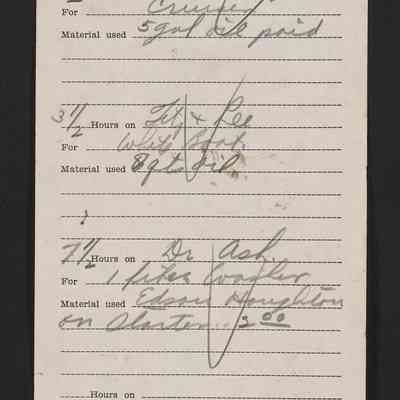 For Cruiser
Material used 5 gal oil paid
3 1/2 Hours on Fitz & Lee
For White Boat
Material used 8 qts oil
7 1/2 Hours on Dr Ash.
For 1
Material used Edson Houghton
on Starter 2 00
Hours on